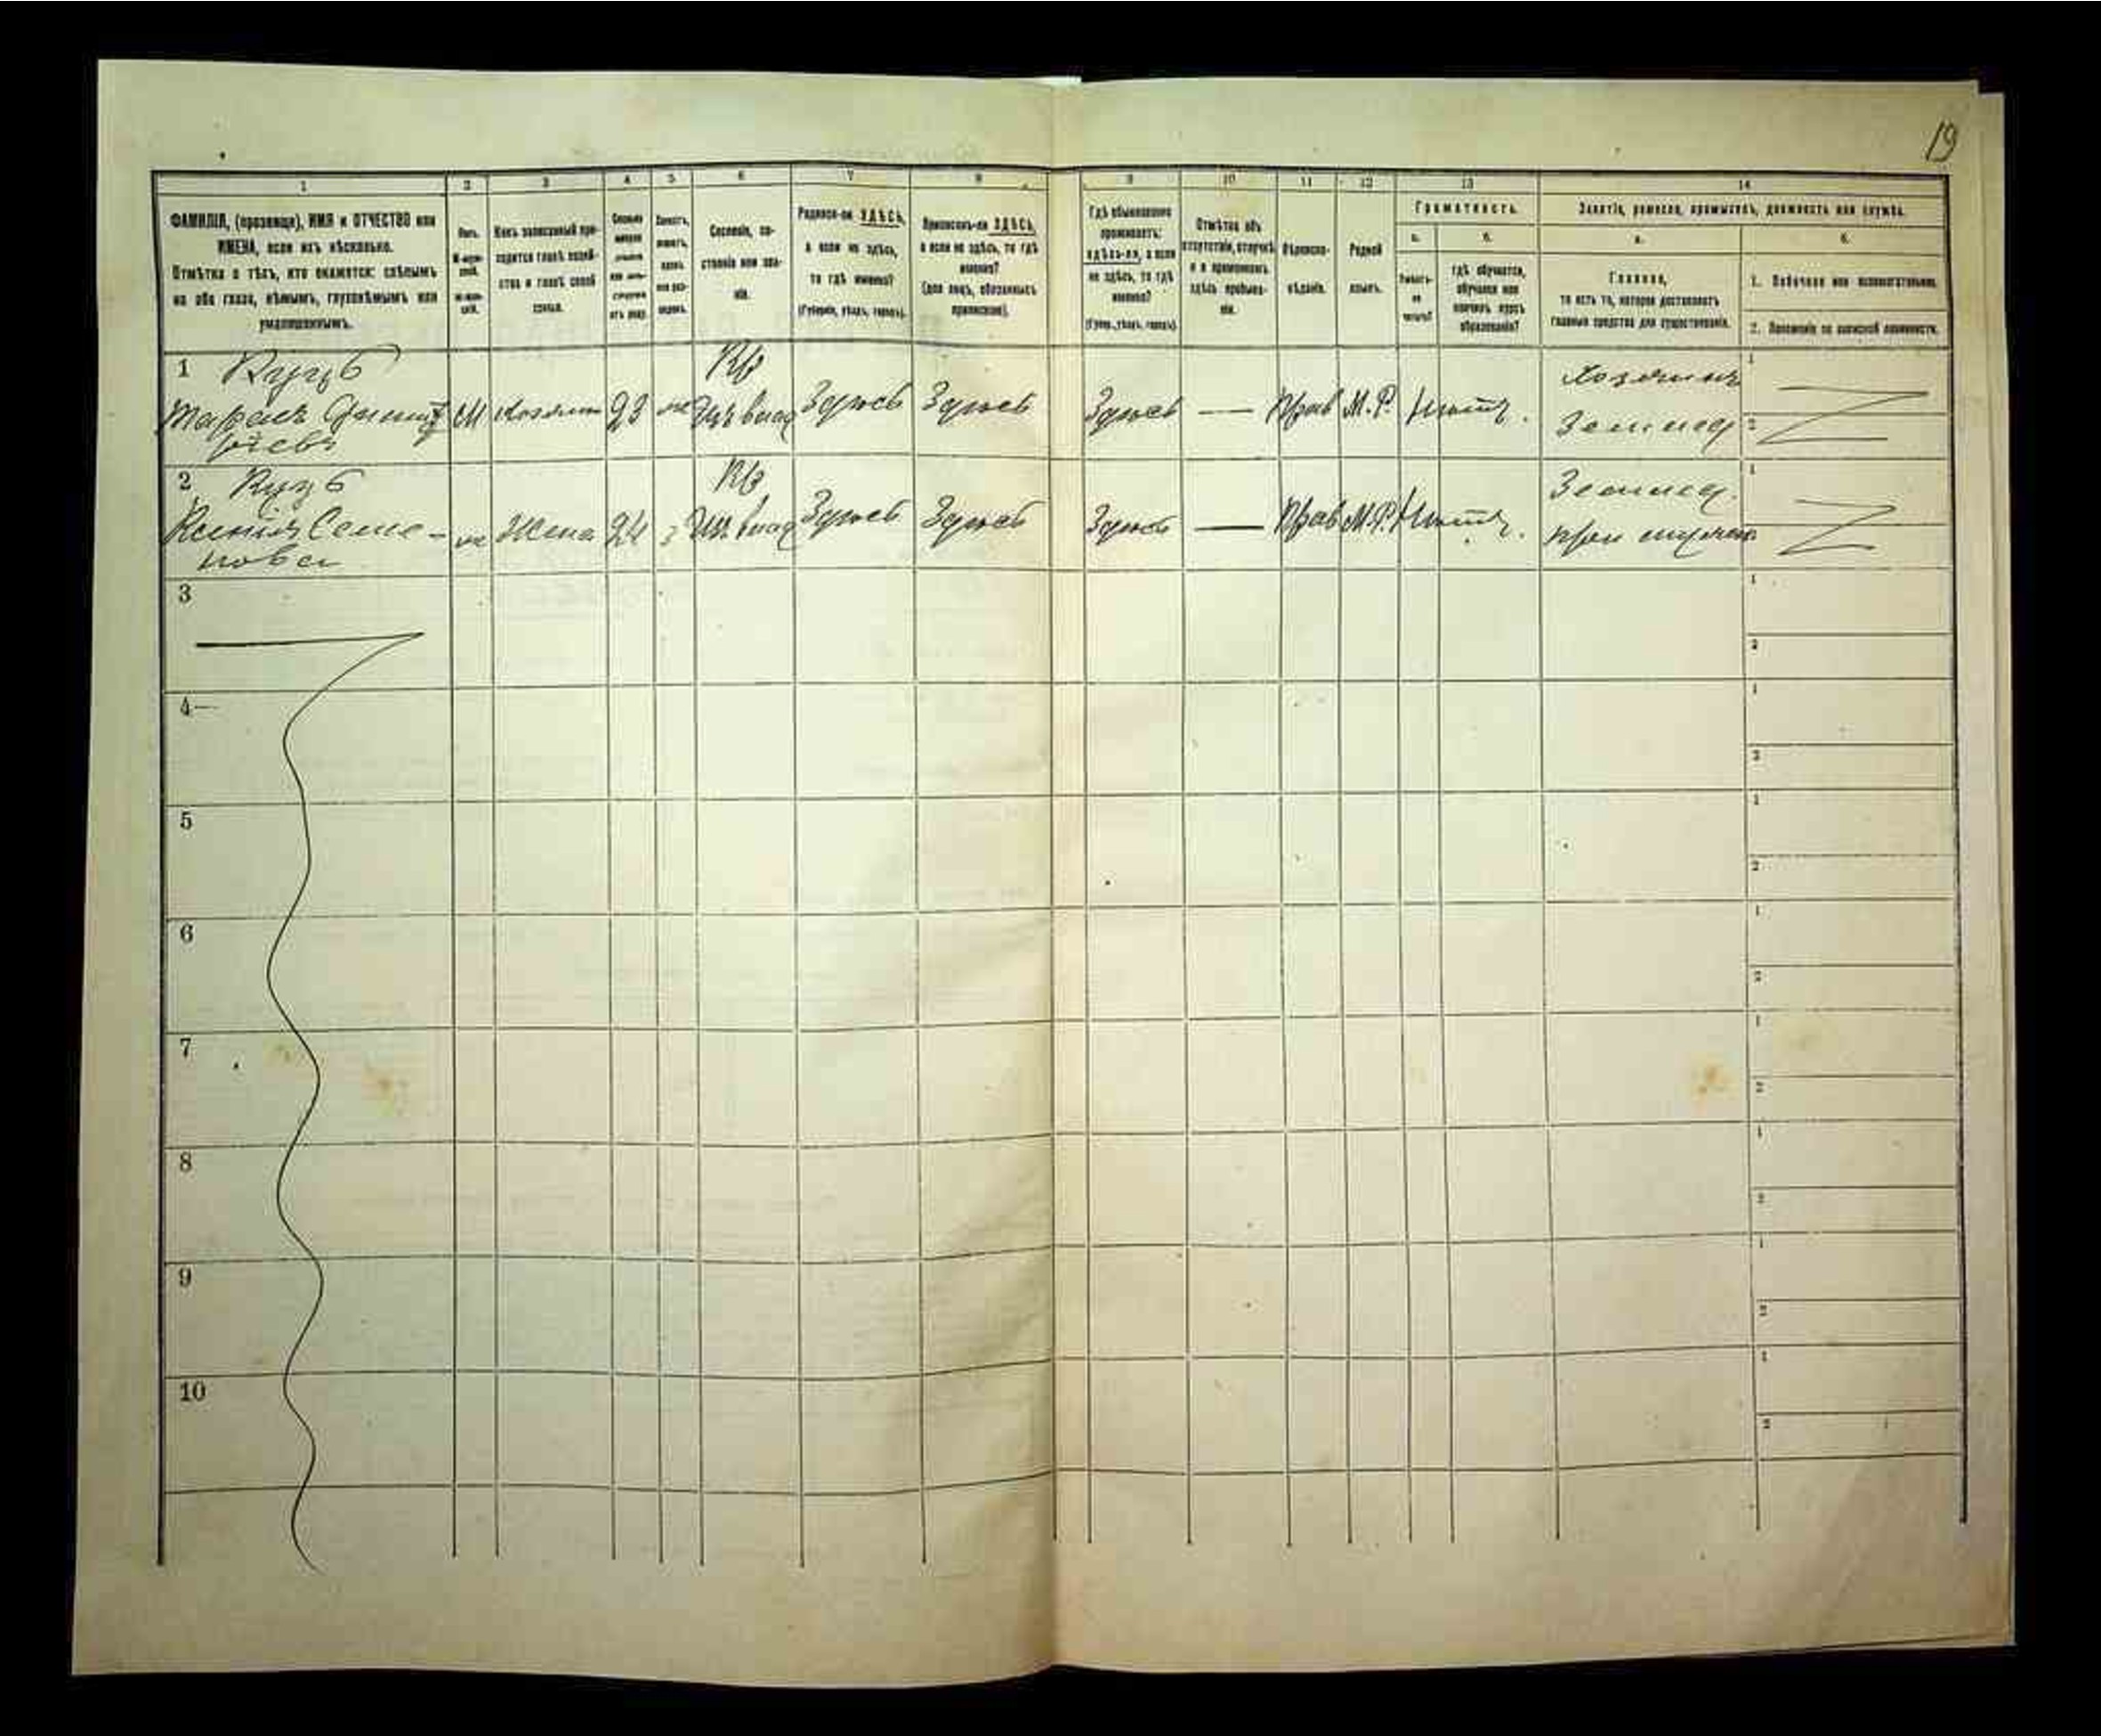 19
1 2 3 4 5 6 7 8 9 10 11 12 13 14
ФАМИЛІЯ, (прозвище), ИМЯ и ОТЧЕСТВО или
ИМЕНА, если ихъ нѣсколько.
Отмѣтка о тѣхъ, кто окажется: слѣпымъ
на оба глаза, нѣмымъ, глухонѣмымъ или
умалишеннымъ.
Полъ.
Какъ записанный при-
ходится главѣ хозяй-
ства и главѣ своей
семьи.
Сословіе, со-
стояніе или зва-
ніе.
Родился-ли ЗДѢСЬ,
а если не здѣсь,
то гдѣ именно?
(Губернія, уѣздъ, городъ).
Приписанъ-ли ЗДѢСЬ,
а если не здѣсь, то гдѣ
именно?
(для лицъ, обязанныхъ
припискою).
Гдѣ обыкновенно
проживаетъ:
здѣсь-ли, а если
не здѣсь, то гдѣ
именно?
(Губер., уѣздъ, городъ)
Отмѣтка объ
отсутствіи, отлучкѣ
и о временномъ
здѣсь пребыва-
ніи.
Вѣроиспо-
вѣданіе.
Родной
языкъ.
Грамотность.
а. б.
Умѣетъ-
ли
читать?
гдѣ обучается,
обучался или
кончилъ курсъ
образованія?
Занятіе, ремесло, промыселъ, должность или служба.
а. б.
Главное,
то есть то, которое доставляетъ
главныя средства для существованія.
1. Побочное или вспомогательное.
2. Положеніе по воинской повинности.
1
М Хозяин 23 Здѣсь Здѣсь Здѣсь — Прав М.Р. Нѣтъ.
Хозяинъ
Землед
2
Ксенія Семе-
нова
Жена 24 З Здѣсь Здѣсь Здѣсь — Прав М.Р. Нѣтъ.
Землед.
при мужѣ
3
4
5
6
7
8
9
10